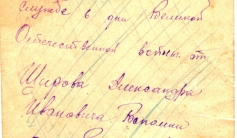 службе в дни Великой
Отечественной войны от
Широва Александра
Ивановича